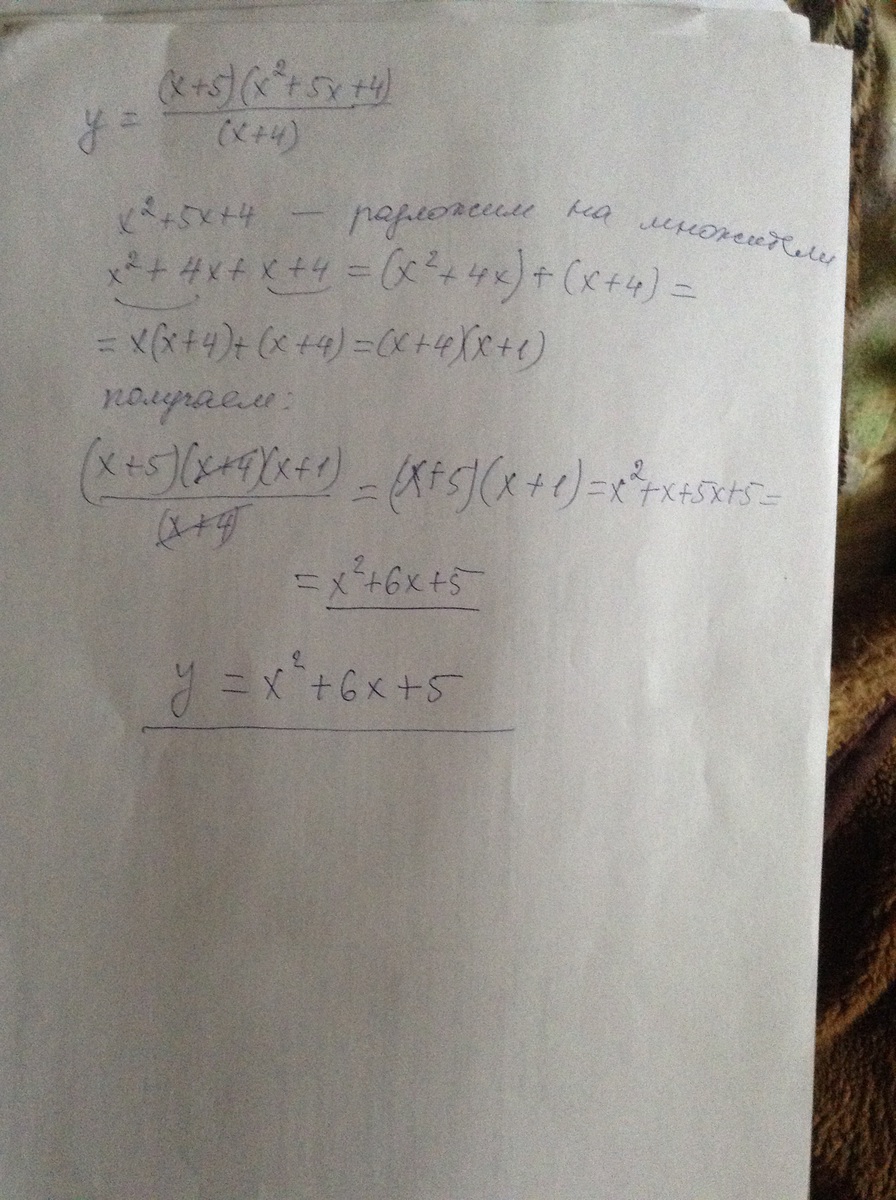 y = (x+5)(x²+5x+4)/(x+4)
x²+5x+4 — разложим на множители
x²+4x+x+4 = (x²+4x)+(x+4) =
= x(x+4)+(x+4)=(x+4)(x+1)
получаем:
(x+5)(x+4)(x+1)/(x+4) = (x+5)(x+1)=x²+x+5x+5=
= x²+6x+5
y = x²+6x+5